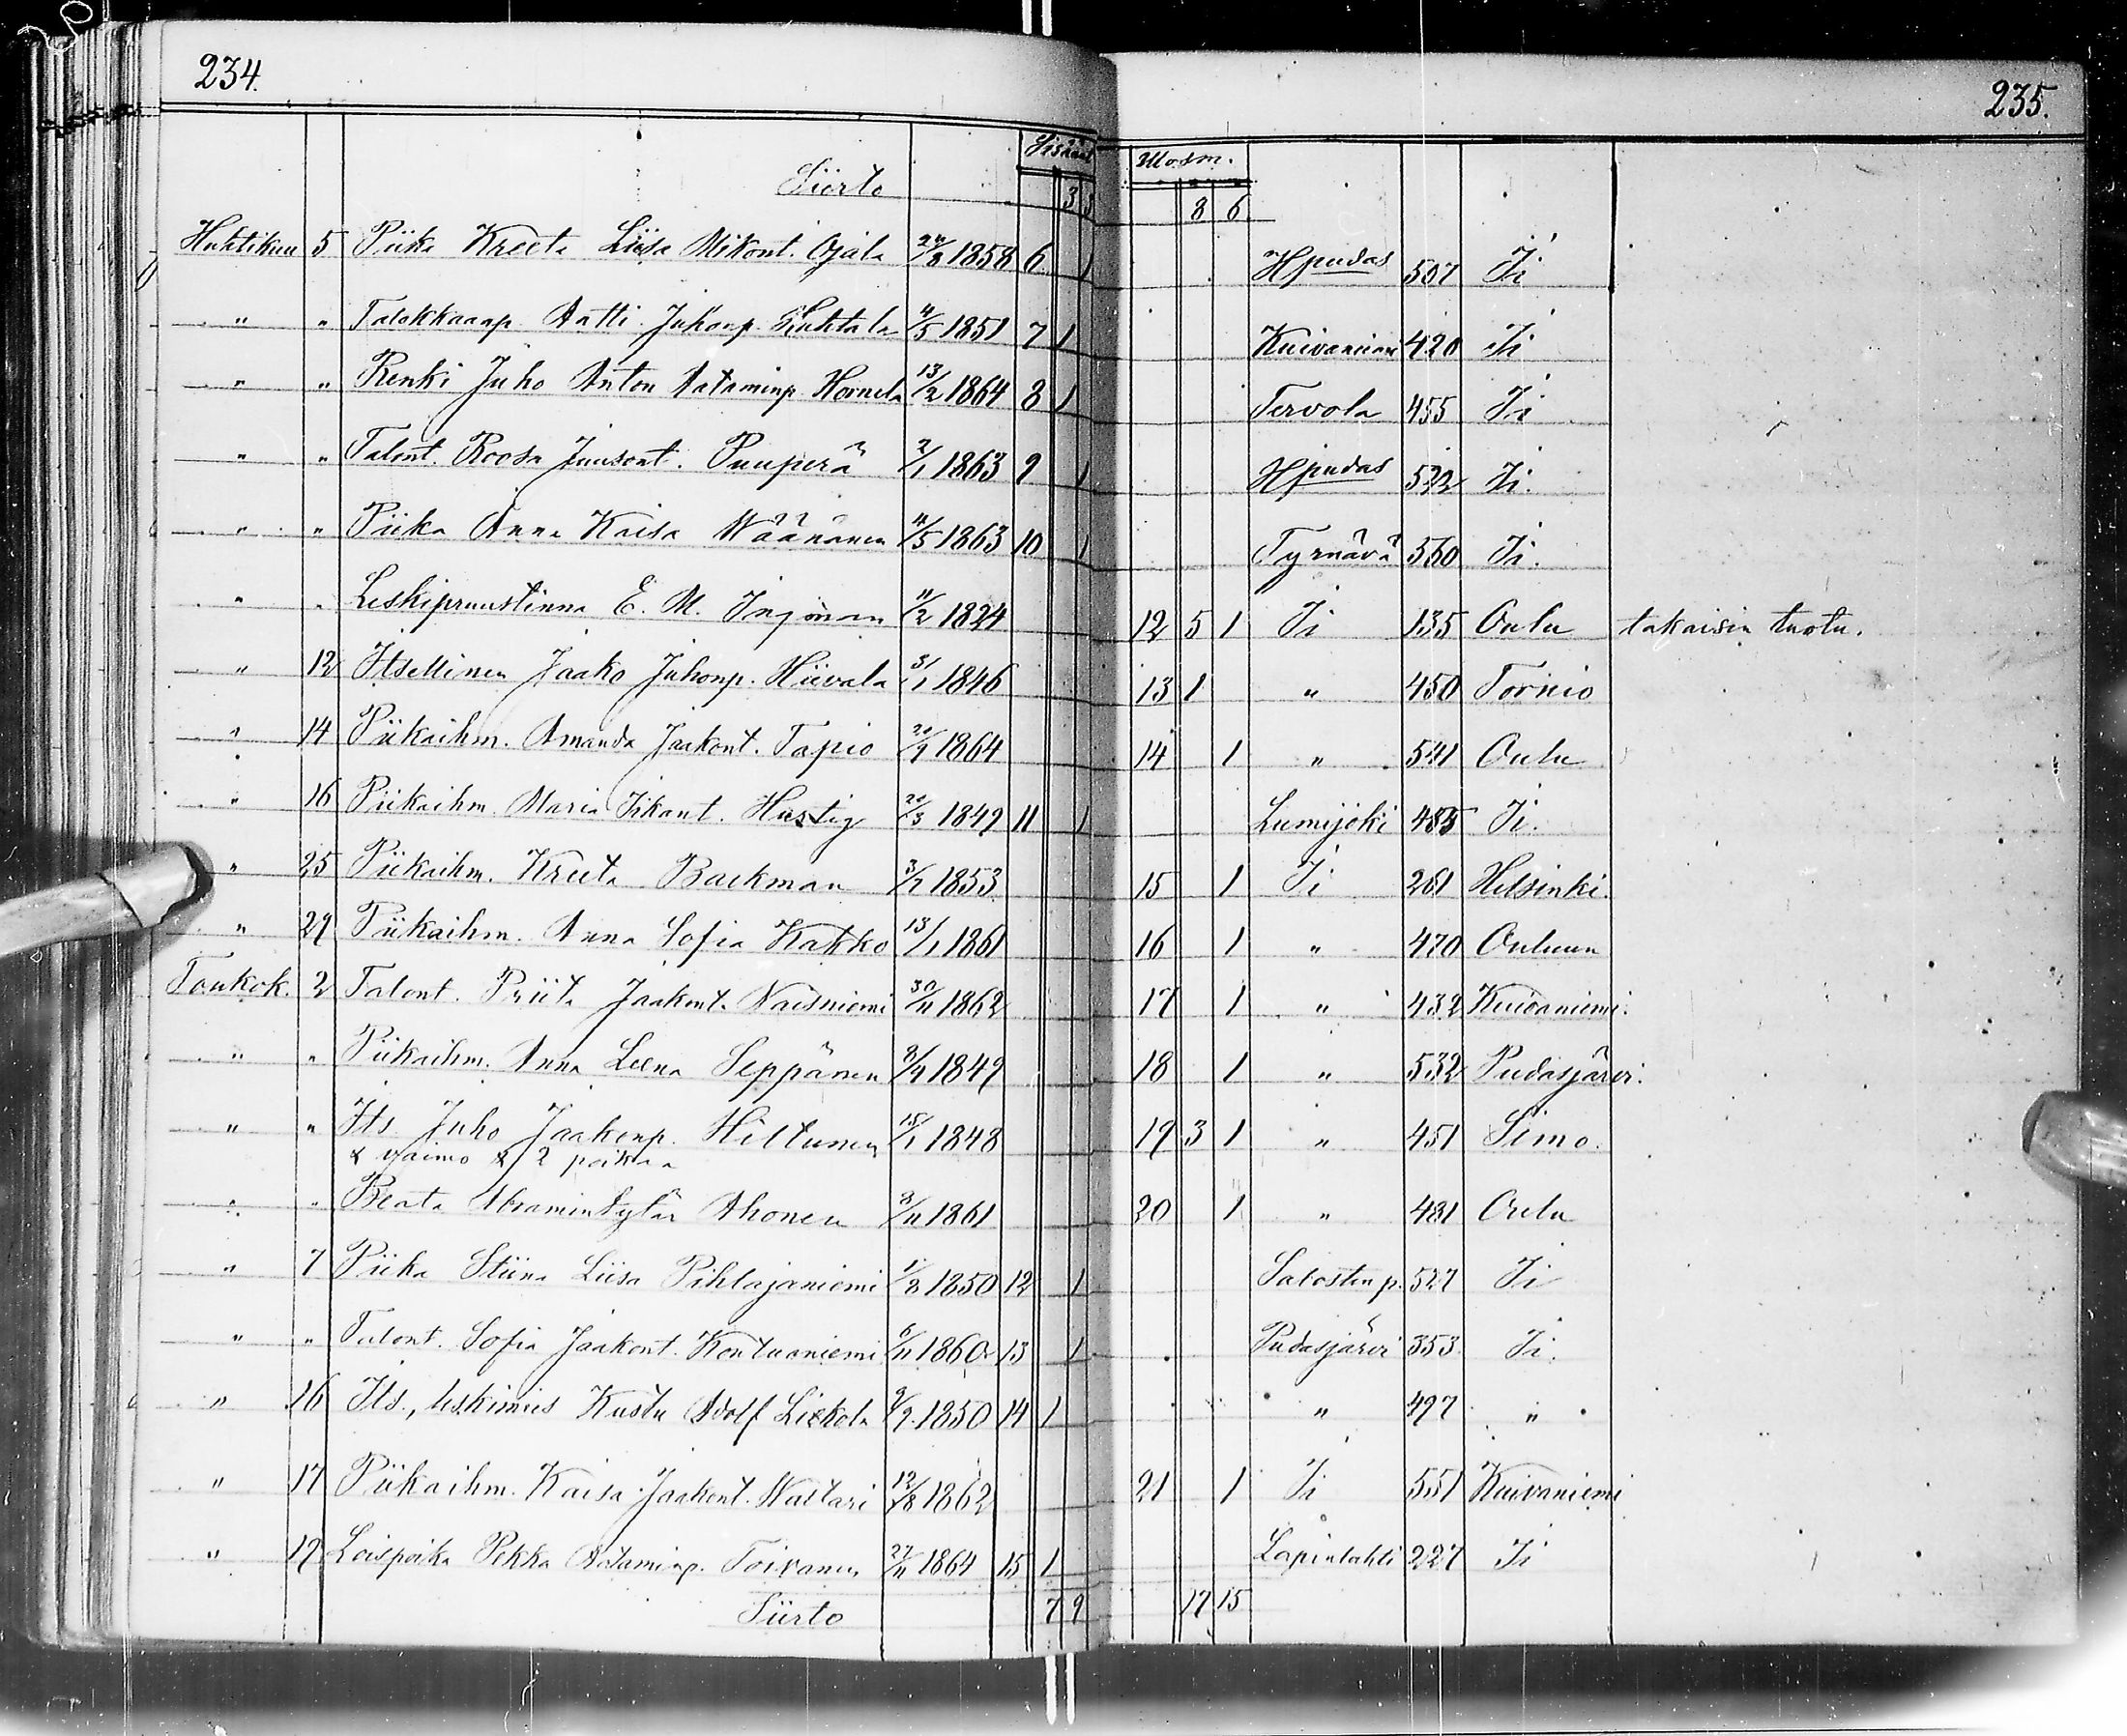 234.
235.
Sisään
Ulosm.
Siirto 3 3 8 6
Huhtikuu 5 Piika Kreeta Liisa Mikont. Ojala 24/8 1858 6 1 Hpudas 507 Ii
" " Talokkaanp. Antti Juhonp. Huhtala 4/5 1851 7 1 Kuivaniemi 420 Ii
" " Renki Juho Anton Aataminp. Hornela 13/2 1864 8 1 Tervola 455 Ii
" " Talont. Roosa Juusont. Puuperä 2/1 1863 9 1 Hpudas 522 Ii.
" " Piika Anna Kaisa Väänänen 4/5 1863 10 1 Tyrnävä 560 Ii.
" " Leskipruustinna E. M. Injman 11/2 1824 12 5 1 Ii 135 Oulu takaisin tuotu.
" 12 Itsellinen Jaako Juhonp. Hiivala 31/1 1846 13 1 " 450 Tornio
" 14 Piikaihm. Amanda Jaakont. Tapio 20/9 1864 14 1 " 541 Oulu
" 16 Piikaihm. Maria Iikant. Hastig 20/3 1849 11 1 Lumijoki 485 Ii.
" 25 Piikaihm. Kreeta Backman 3/7 1853 15 1 Ii 261 Helsinki.
" 29 Piikaihm. Anna Sofia Kakko 13/1 1861 16 1 " 470 Ouluun
Toukok. 2 Talont. Priita Jaakont. Naisniemi 30/11 1862 17 1 " 432 Kuivaniemi.
" " Piikaihm. Anna Leena Seppänen 8/9 1849 18 1 " 532 Pudasjärvi.
" " Its. Juho Jaakonp. Hiltunen 15/1 1848 19 3 1 " 451 Simo.
& vaimo & 2 poikaa
" " Beata Abramintytär Ahonen 8/11 1861 20 1 " 481 Oulu
" 7 Piika Stiina Liisa Pihlajaniemi 1/8 1850 12 1 Salosten p. 527 Ii
" " Talont. Sofia Jaakont. Kontuaniemi 6/11 1860 13 1 Pudasjärvi 353 Ii.
" 16 Its., leskimies Kustu Adolf Liekola 9/9 1850 14 1 " 497 "
" 17 Piikaihm. Kaisa Jaakont. Waltari 12/8 1862 21 1 Ii 551 Kuivaniemi
" 19 Loispoika Pekka Aataminp. Toivanen 27/11 1864 15 1 Lapinlahti 227 Ii
Siirto 7 9 17 15